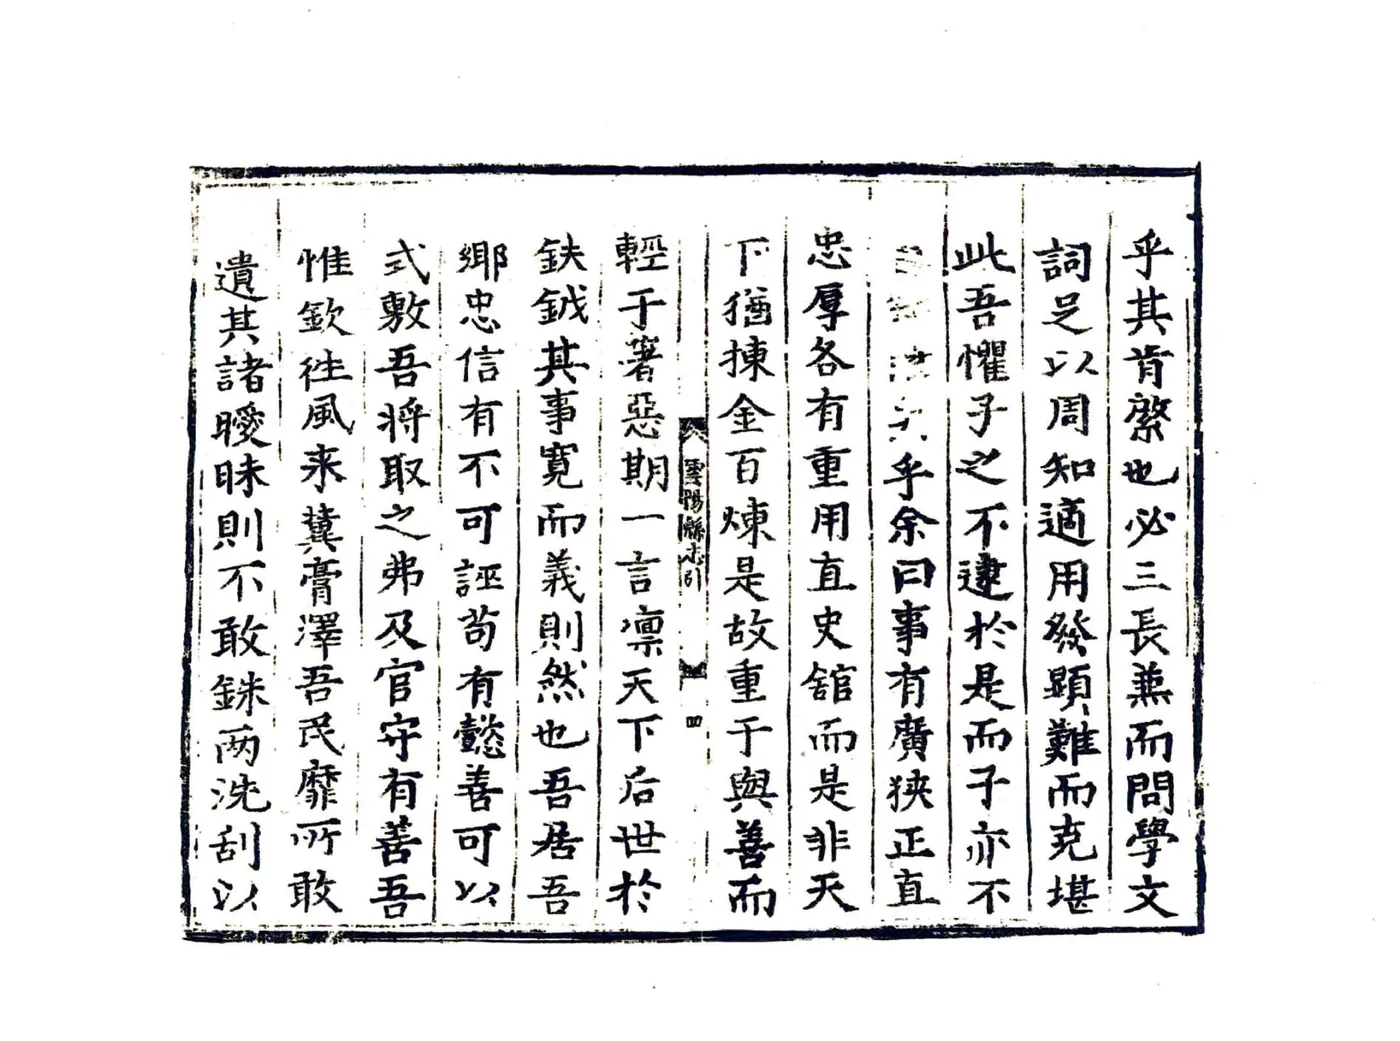 乎其肯綮也必三長兼而問學文
詞足以周知適用發顯難而克堪
此吾懼子之不逮於是而子亦不
乎余曰事有廣狹正直
忠厚各有重用直史舘而是非天
下猶揀金百煉是故重于與善而
雲陽縣志引
四
輕于著惡期一言凛天下后世於
鈇鉞其事寬而義則然也吾居吾
鄉忠信有不可誣苟有懿善可以
式敷吾將取之弗及官守有善吾
惟欽徃風来冀膏澤吾民靡所敢
遺其諸曖昧則不敢銖両洗刮以